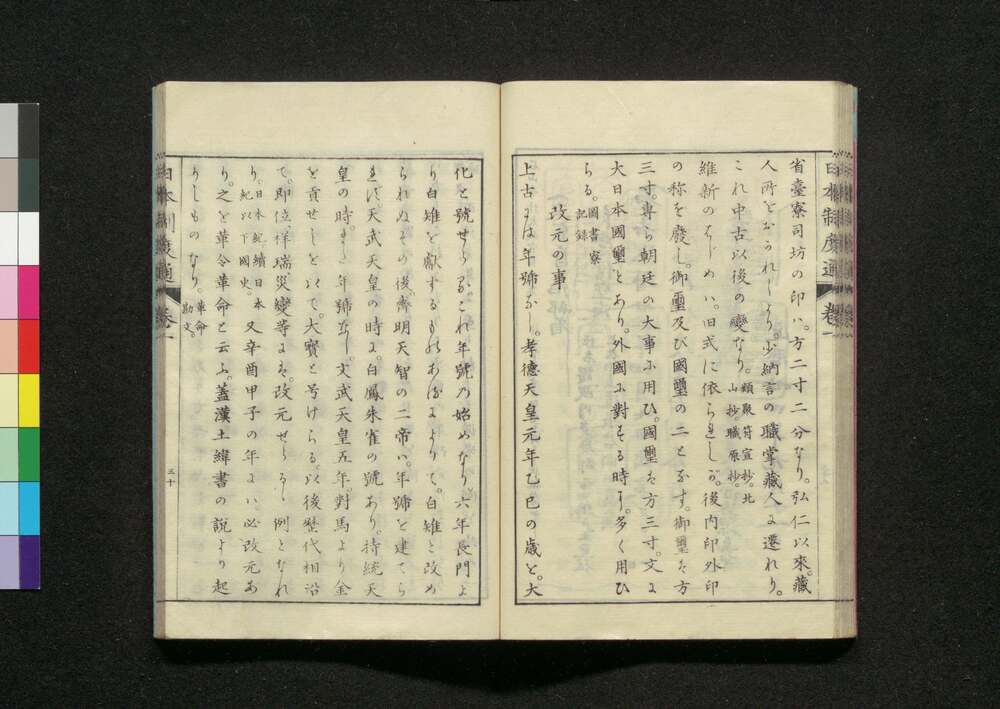 省臺寮司坊の印ハ。方二寸二分なり。弘仁以來。藏
人所をおかれしより。少納言の職掌藏人に遷れり。
これ中古以後の變なり。類聚符宣抄。北山抄。職原抄。
維新のはじめハ。旧式に依られしが。後内印外印
の称を廢し。御璽及び國璽の二とす。御璽は方
三寸。専ら朝廷の大事に用ひ。國璽は方三寸。文に
大日本國璽とあり。外國に對する時に。多く用ひ
らる。圖書寮記録
改元の事
上古には年號なし。孝德天皇元年乙巳の歳を。大
日本制度通 卷一
化と號せらる。これ年號の始めなり。六年長門よ
り白雉を獻ずるものあるによりて。白雉と改め
られぬ。その後。齊明天智の二帝ハ。年號を建てら
れず。天武天皇の時に。白鳳朱雀の號あり。持統天
皇の時。また年號なし。文武天皇五年。對馬より金
を貢せしを以て。大寶と号けらる。以後歴代相沿
て。即位。祥瑞。災變等には。改元せらるゝ例となれ
り。日本紀。續日本紀以下國史。又辛酉甲子の年には。必改元あ
り。之を革令革命と云ふ。蓋漢土緯書の説より起
りしものなり。革命勘文。
日本制度通 卷一
三十